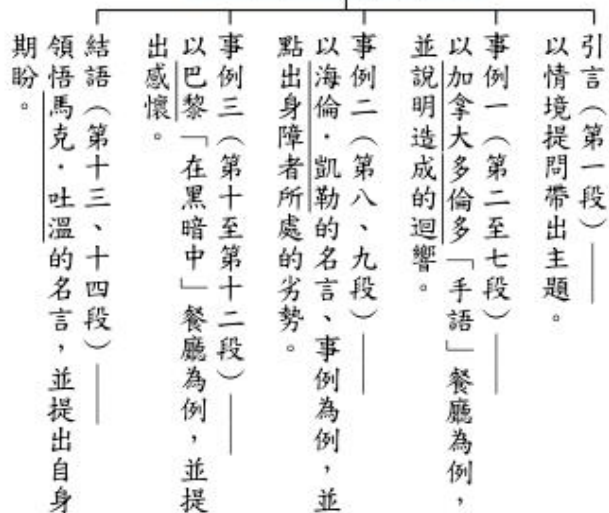 引言（第一段）——
以情境提問帶出主題。
事例一（第二至七段）——
以加拿大多倫多「手語」餐廳為例，
並說明造成的迴響。
事例二（第八、九段）——
以海倫．凱勒的名言、事例為例，並
點出身障者所處的劣勢。
事例三（第十至第十二段）——
以巴黎「在黑暗中」餐廳為例，並提
出感懷。
結語（第十三、十四段）——
領悟馬克．吐溫的名言，並提出自身
期盼。